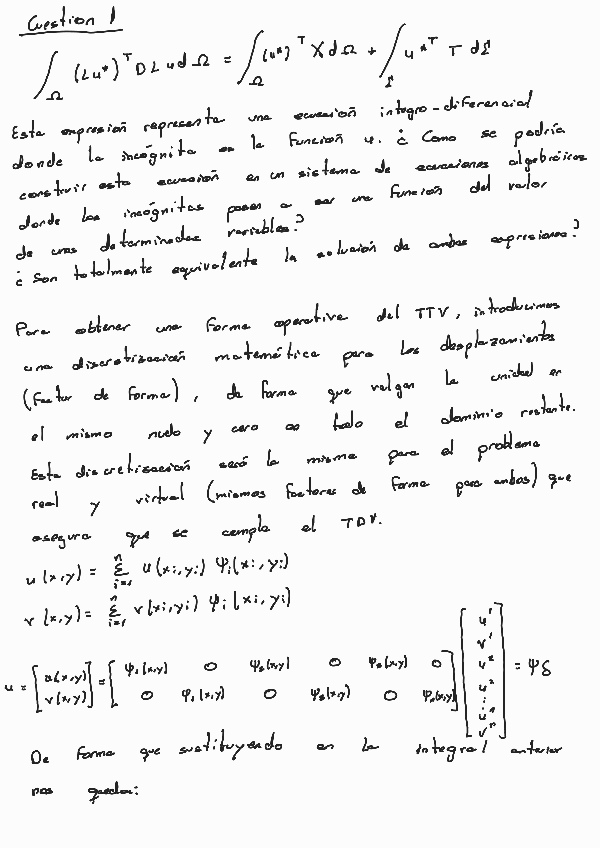 Cuestion 1
∫_Ω (Lu*)^T D L u d Ω = ∫_Ω (u*)^T X d Ω + ∫_Σ u*^T T d Σ
Esta expresión representa una ecuación integro-diferencial
donde la incógnita es la función u. ¿ Como se podría
construir esta ecuación en un sistema de ecuaciones algebráicas
donde las incógnitas pasen a ser una función del valor
de unas determinadas variables?
¿ Son totalmente equivalente la solución de ambas expresiones?
Para obtener una forma operativa del TTV, introducimos
una discretización matemática para los desplazamientos
(factor de forma), de forma que valgan la unidad en
el mismo nudo y cero en todo el dominio restante.
Esta discretización será la misma para el problema
real y virtual (mismos factores de forma para ambos) que
asegura que se cumpla el TDV.
u(x,y) = Σ_{i=1}^{n} u(xi,yi) Ψi(xi,yi)
v(x,y) = Σ_{i=1}^{n} v(xi,yi) Ψi(xi,yi)
u = [u(x,y) v(x,y)] = [Ψ1(x,y) 0 Ψ2(x,y) 0 Ψn(x,y) 0
0 Ψ1(x,y) 0 Ψ2(x,y) 0 Ψn(x,y)] [u¹ v¹ u² u² ⋮ uⁿ vⁿ] = Ψδ
De forma que sustituyendo en la integral anterior
nos queda: